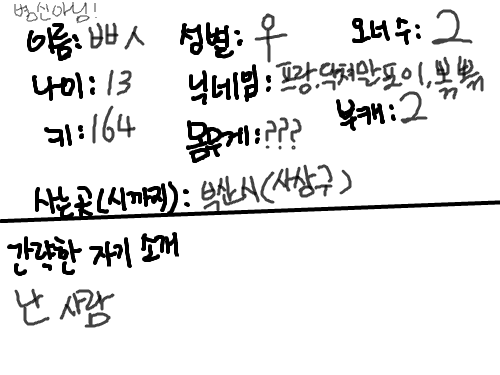 병신아님!
이름: ㅃㅅ 성별: 우 오너 수: 2
나이: 13 닉네임: 프랑,닥쳐만포이,뾲뾲
부캐: 2
키: 164 몸무게: ???
사는곳(시까지): 부산시(사상구)
간략한 자기 소개
난 사람